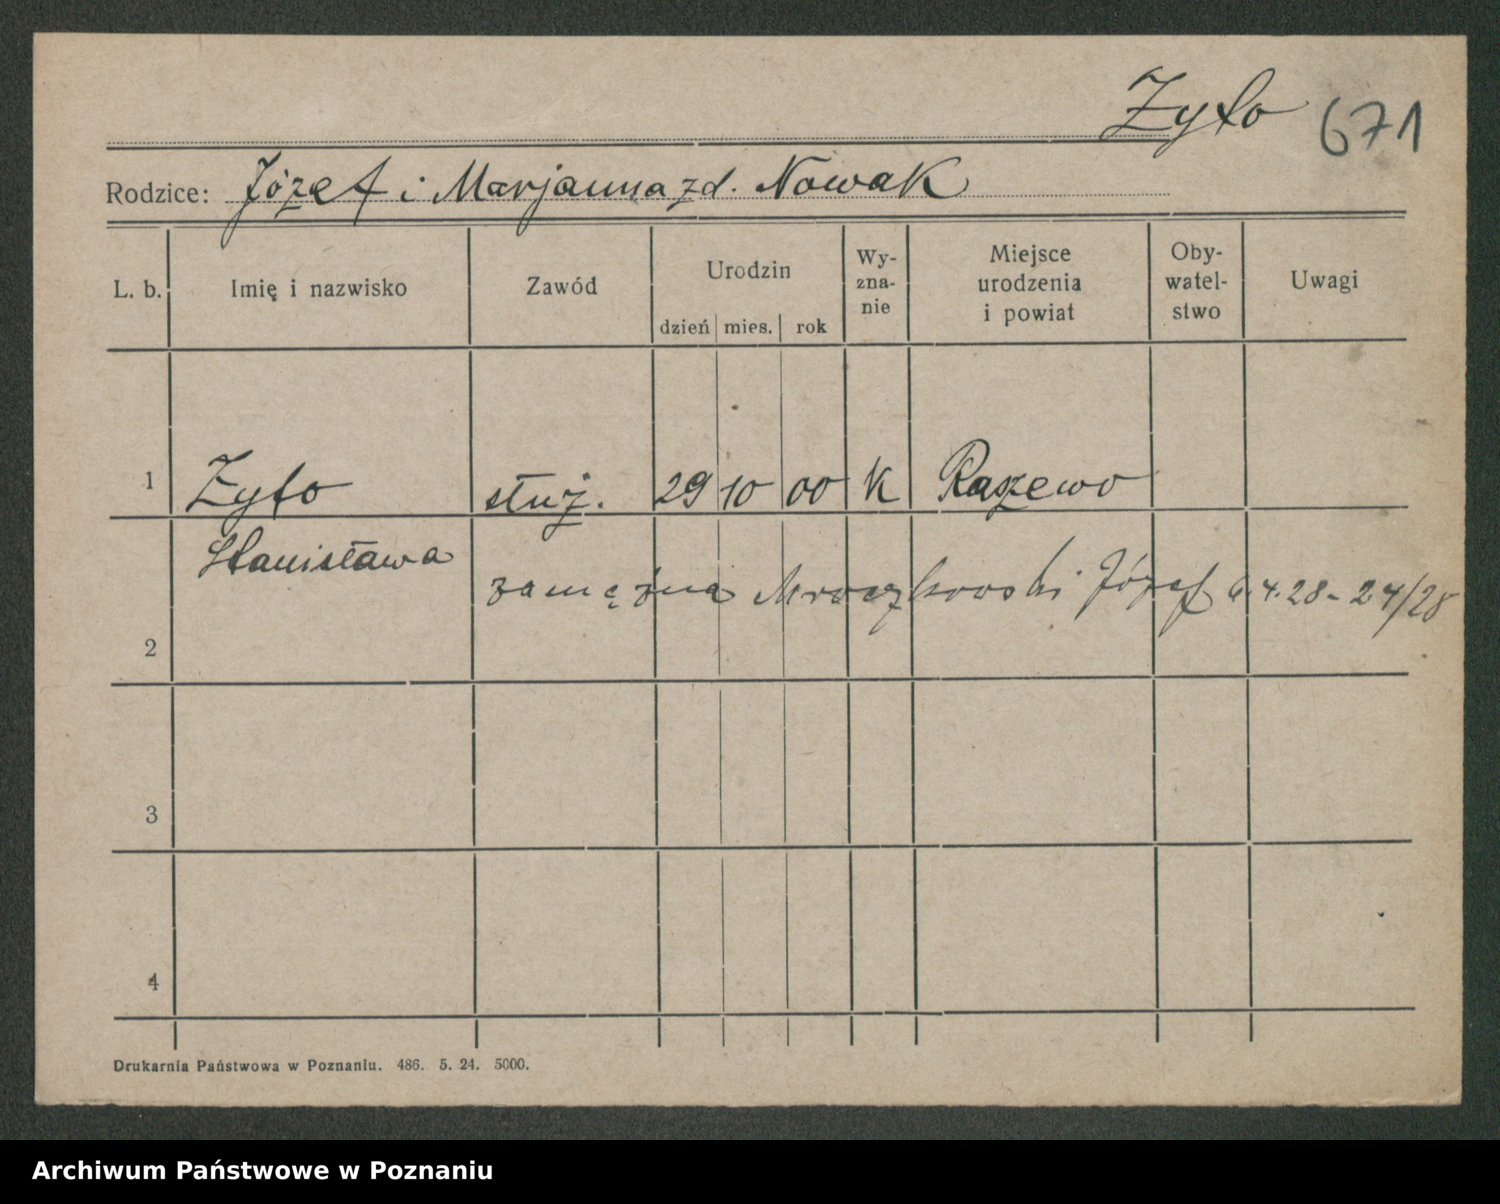 Żyło 671
Rodzice: Józef i Marjanna zd. Nowak
L. b. Imię i nazwisko Zawód Urodzin dzień mies. rok Wy-zna-nie Miejsce urodzenia i powiat Oby-watel-stwo Uwagi
1 Żyło służ. 29 10 00 K Raszewo
Stanisława
zamężna Mroczkowski Józef 4.28 - 24/28
2
3
4
Drukarnia Państwowa w Poznaniu. 486. 5. 24. 5000.
Archiwum Państwowe w Poznaniu